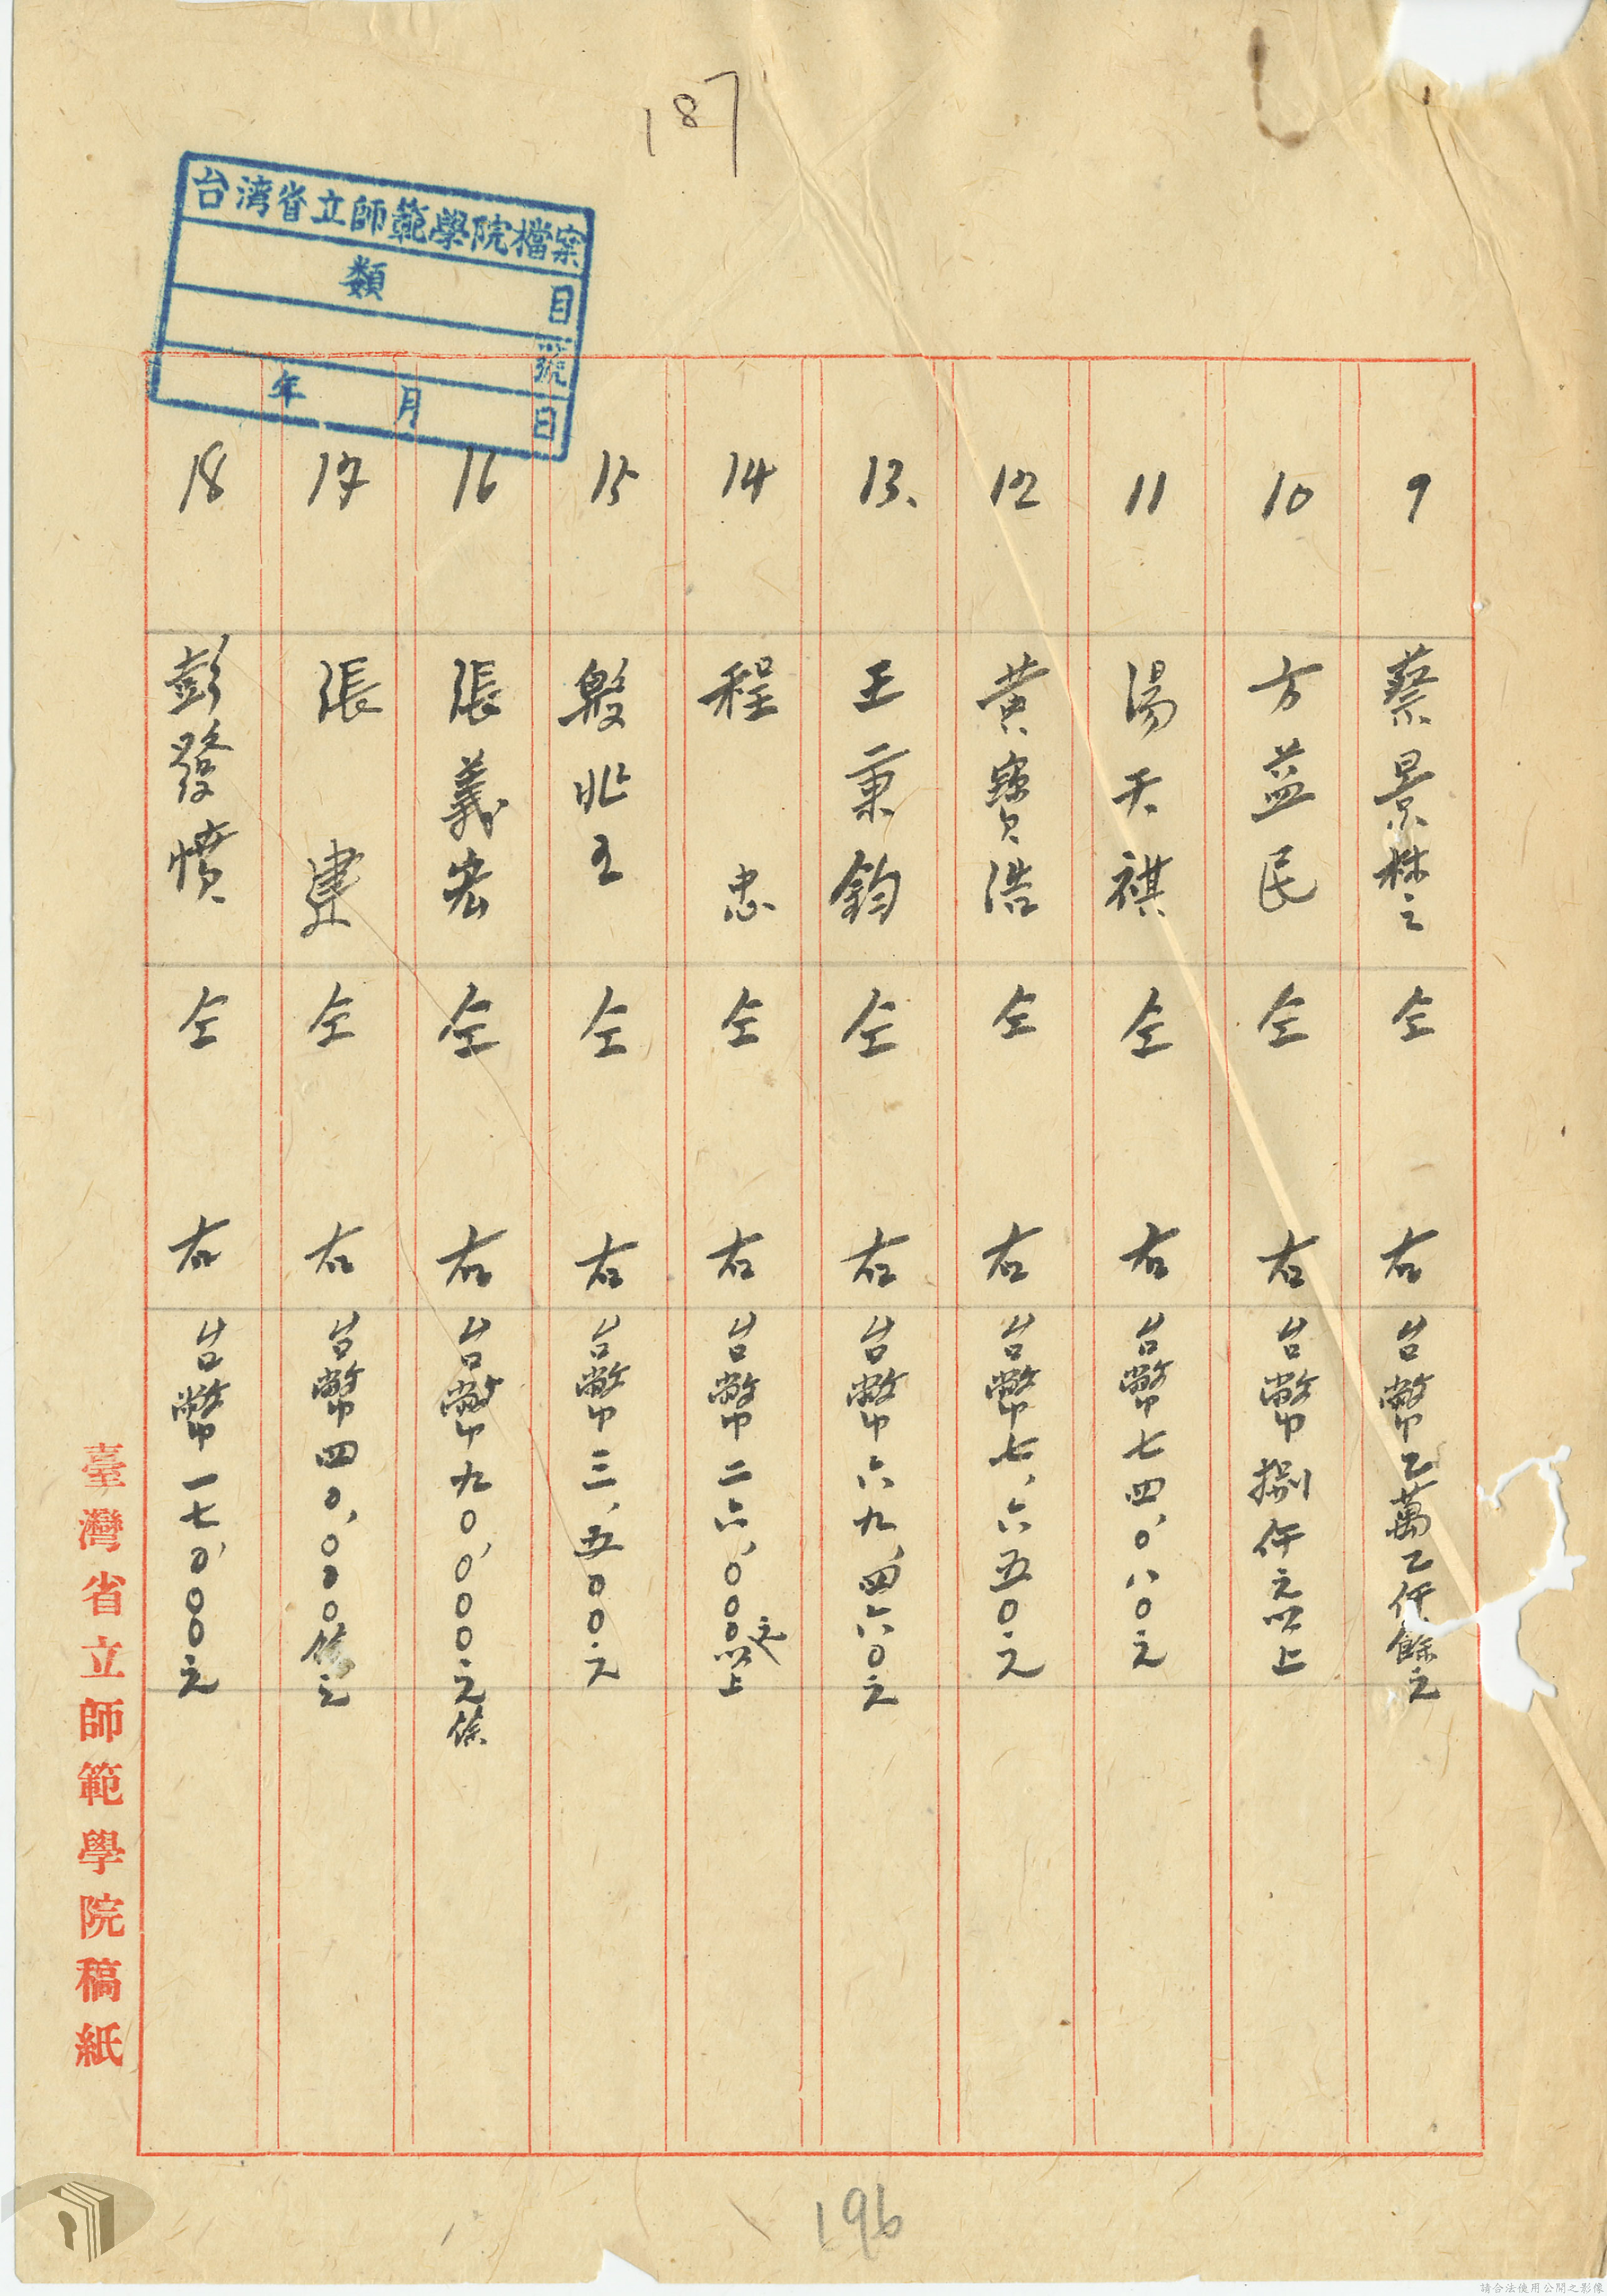 187
台湾省立師範學院檔案
類 目
號
年 月 日
9 蔡景株之 仝 右 台幣乙萬乙仟餘元
10 方益民 仝 右 台幣捌仟元以上
11 湯天祺 仝 右 台幣七四、〇八〇元
12 黄寶浩 仝 右 台幣七、六五〇元
13、 王秉鈞 仝 右 台幣六九、四六〇元
14 程忠 仝 右 台幣二六、〇〇〇元以上
15 殷兆玉 仝 右 台幣三、五〇〇元
16 張義宏 仝 右 台幣九〇、〇〇〇元馀
17 張建 仝 右 台幣四〇、〇〇〇馀元
18 彭發憤 仝 右 台幣一七〇、〇〇元
臺灣省立師範學院稿紙
196
請合法使用公開之影像